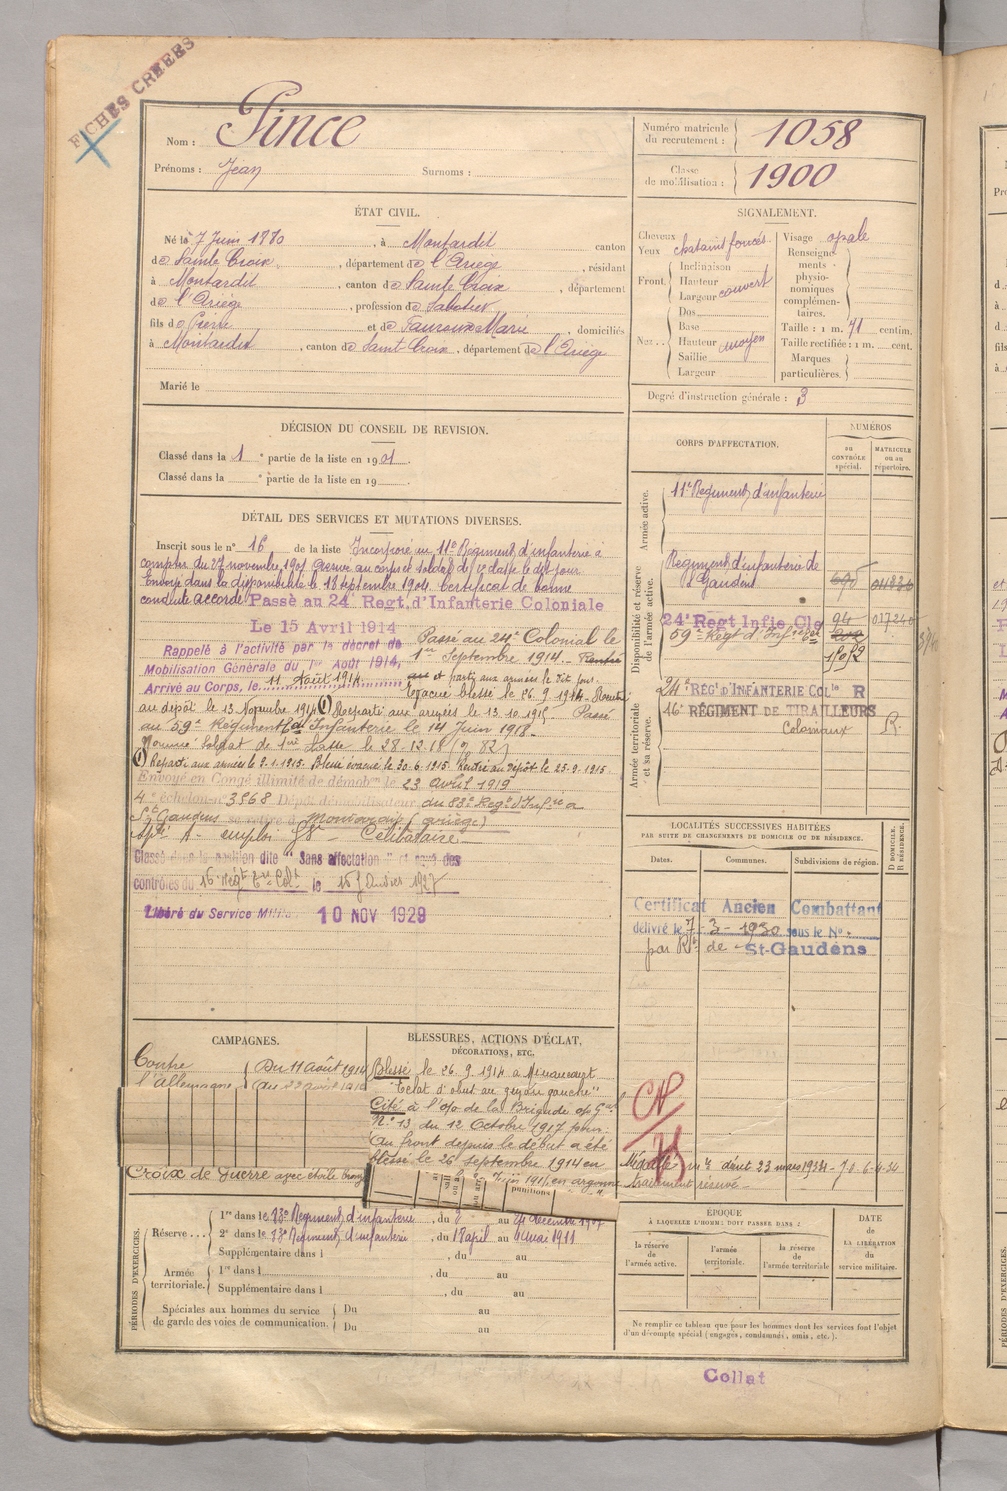 FICHES CREEES
Nom : Pince
Prénoms : Jean Surnoms :
Numéro matricule du recrutement : 1058
Classe de mobilisation : 1900
ÉTAT CIVIL.
Né le 7 Juin 1880, à Montardit canton
de Sainte Croix, département de l'Ariège, résidant
à Montardit, canton de Sainte Croix, département
de l'Ariège, profession de Sabotier
fils de Pierre et de Fauroux Marie, domiciliés
à Montardit, canton de Saint Croix, département de l'Ariège
Marié le
SIGNALEMENT.
Cheveux
Yeux chatains foncés
Front. Inclinaison
Hauteur
Largeur couvert
Nez.. Dos
Base
Hauteur moyen
Saillie
Largeur
Visage
Renseignements physionomiques complémentaires.
Taille : 1 m. 71 centim.
Taille rectifiée : 1 m. cent.
Marques particulières.
Degré d'instruction générale : 3
DÉCISION DU CONSEIL DE REVISION.
Classé dans la 1e partie de la liste en 1901.
Classé dans la e partie de la liste en 19
DÉTAIL DES SERVICES ET MUTATIONS DIVERSES.
Inscrit sous le n° 16 de la liste Incorporé au 11e Régiment d'infanterie à
compter du 27 novembre 1901 au corps et soldat de 2e classe le dit jour.
Envoyé dans la disponibilité le 18 septembre 1904. Certificat de bonne
conduite accordé Passé au 24e Regt. d'Infanterie Coloniale
Le 15 Avril 1914
Rappelé à l'activité par le décret de
Mobilisation Générale du 1er Août 1914,
Arrivé au Corps, le 11 Août 1914
Passé au 24e Colonial le
1er Septembre 1914. Rentré
et parti aux armées le dit jour.
Evacué blessé le 26.9.1914. Rentré
au dépôt le 13 Novembre 1914 (1) Reparti aux armées le 13.10.1915. Passé
au 59e Régiment d'Infanterie le 14 Juin 1918.
Nommé Soldat de 1ère Classe le 28.12.18
(1) Reparti aux armées le 9.1.1915. Blessé évacué le 30.6.1915. Rentré au dépôt le 25.9.1915.
Envoyé en Congé illimité de démobon le 23 avril 1919
4e échelon n° 3968 Dépôt démobilisateur du 83e Regt d'Infrie à
St Gaudens se retire à (Ariège)
emploi Célibataire
Classé dans la position dite " Sans affectation " et rayé des
contrôles du 16e Régt le 15 Janvier 1927
Libéré du Service Milit. 10 NOV 1929
CORPS D'AFFECTATION.
NUMÉROS
AU CONTRÔLE spécial.
MATRICULE ou au répertoire.
Armée active.
11e Régiment d'infanterie
Disponibilité et réserve de l'armée active.
Régiment d'infanterie de
St Gaudens
24e Regt Infie Cle 94 017240
59e Regt d'Inf
Armée territoriale et sa réserve.
24e RÉGt D'INFANTERIE COLle R
16e RÉGIMENT DE TIRAILLEURS
Coloniaux R.
LOCALITÉS SUCCESSIVES HABITÉES
PAR SUITE DE CHANGEMENTS DE DOMICILE OU DE RÉSIDENCE.
Dates. Communes. Subdivisions de région.
D DOMICILE. R RÉSIDENCE.
Certificat Ancien Combattant
délivré le 7-3-1930 sous le N°
par Rt de St-Gaudens
CAMPAGNES.
Contre l'Allemagne
Du 11 Août 1914
au 22 avril 1919
BLESSURES, ACTIONS D'ÉCLAT,
DÉCORATIONS, ETC.
Blessé le 26.9.1914 à Minaucourt
"Eclat d'obus au genou gauche"
Cité à l'o/o de la Brigade o/o Gal
N° 13 du 12 Octobre 1917 pour:
Au front depuis le début a été
blessé le 26 Septembre 1914 en
Juin 1915 en argonne
Croix de Guerre avec étoile bronze
punitions
Médaillé décret 23 mars 1934 - J.O. 6.4.34
traitement réservé
PÉRIODES D'EXERCICES.
Réserve...
1re dans le Régiment d'infanterie, du au
2e dans le Régiment d'infanterie, du 18 april au 4 mai 1911
Supplémentaire dans l , du au
Armée territoriale.
1re dans l , du au
Supplémentaire dans l , du au
Spéciales aux hommes du service
de garde des voies de communication.
Du au
Du au
ÉPOQUE
À LAQUELLE L'HOMME DOIT PASSER DANS :
la réserve de l'armée active.
l'armée territoriale.
la réserve de l'armée territoriale
DATE de LA LIBÉRATION du service militaire.
Ne remplir ce tableau que pour les hommes dont les services font l'objet
d'un décompte spécial (engagés, condamnés, omis, etc.).
Collat